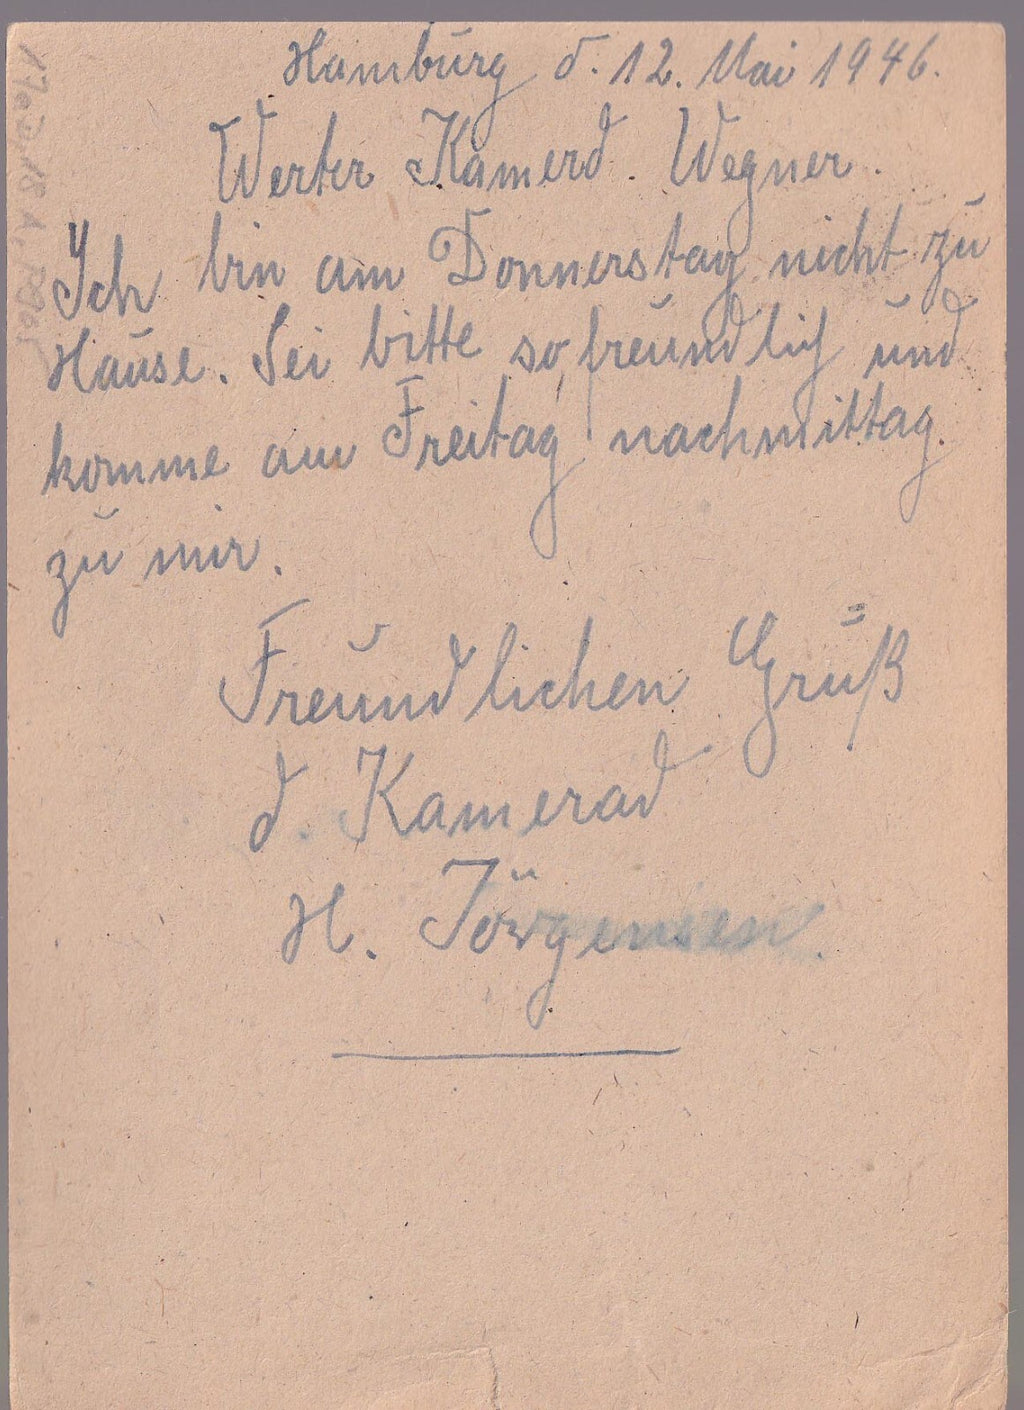 Hamburg d. 12. Mai 1946.
Werter Kamerd. Wegner.
Ich bin am Donnerstag nicht zu
Hause. Sei bitte so freundlich und
komme am Freitag nachmittag
zu mir.
Freundlichen Gruß
d. Kamerad
H. Jörgensen.